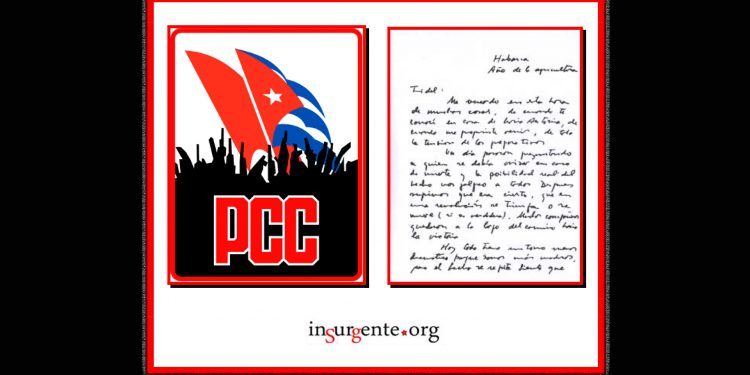 PCC
Habana
Año de la agricultura
Fidel:
Me acuerdo en esta hora
de muchas cosas, de cuando te
conocí en casa de María Antonia, de
cuando me propusiste venir, de toda
la tensión de los preparativos
Un día pasaron preguntando
a quien se debía avisar en caso
de muerte y la posibilidad real del
hecho nos golpeó a todos. Después
supimos que era cierto, que en
una revolución se triunfa o se
muere (si es verdadera). Muchos compañeros
quedaron a lo largo del camino hacia
la victoria
Hoy todo tiene un tono menos
dramático porque somos más maduros,
pero el hecho se repite. Siento que
insurgente.org